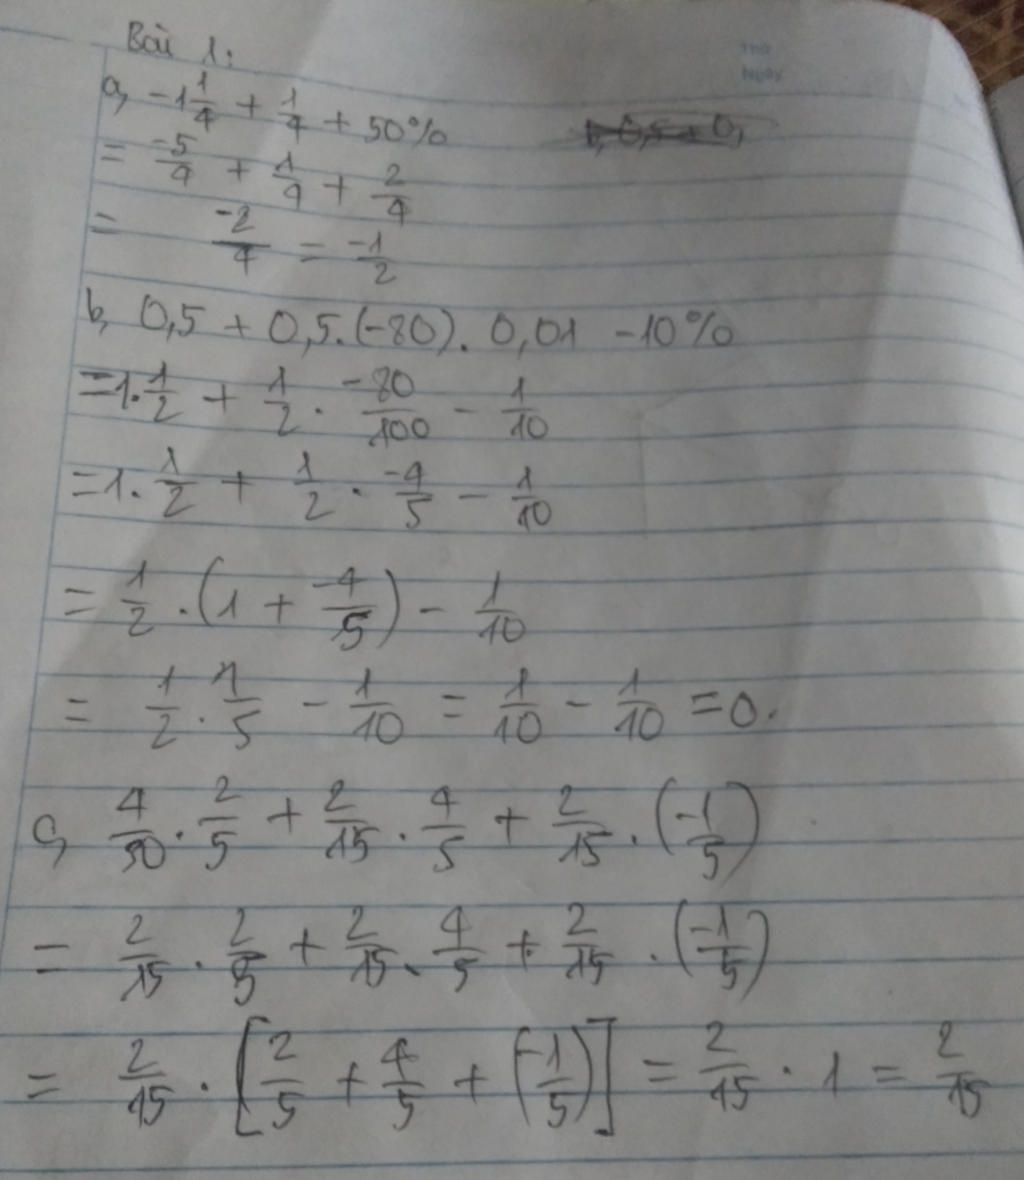 Bài 1:
a, -1 1/4 + 1/4 + 50%
= -5/4 + 1/4 + 2/4
= -2/4 = -1/2
b, 0,5 + 0,5.(-80). 0,01 -10%
=1. 1/2 + 1/2 . -80/100 - 1/10
=1. 1/2 + 1/2 . -4/5 - 1/10
= 1/2 .(1 + -4/5) - 1/10
= 1/2 . 1/5 - 1/10 = 1/10 - 1/10 = 0.
c, 4/30 . 2/5 + 2/15 . 4/5 + 2/15 . (-1/5)
= 2/15 . 2/5 + 2/15 . 4/5 + 2/15 . (-1/5)
= 2/15 . [2/5 + 4/5 + (-1/5)] = 2/15 . 1 = 2/15